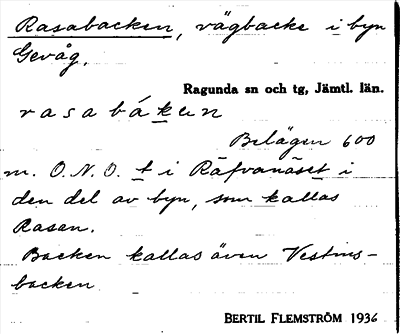 Rasabacken, vägbacke i byn
Gevåg.
Ragunda sn och tg, Jämtl. län.
rasabákен
Belägen 600
m. O.N.O. t i Räfvanäset i
den del av byn, som kallas
Rasan.
Backen kallas även Vestins-
backen.
BERTIL FLEMSTRÖM 1936